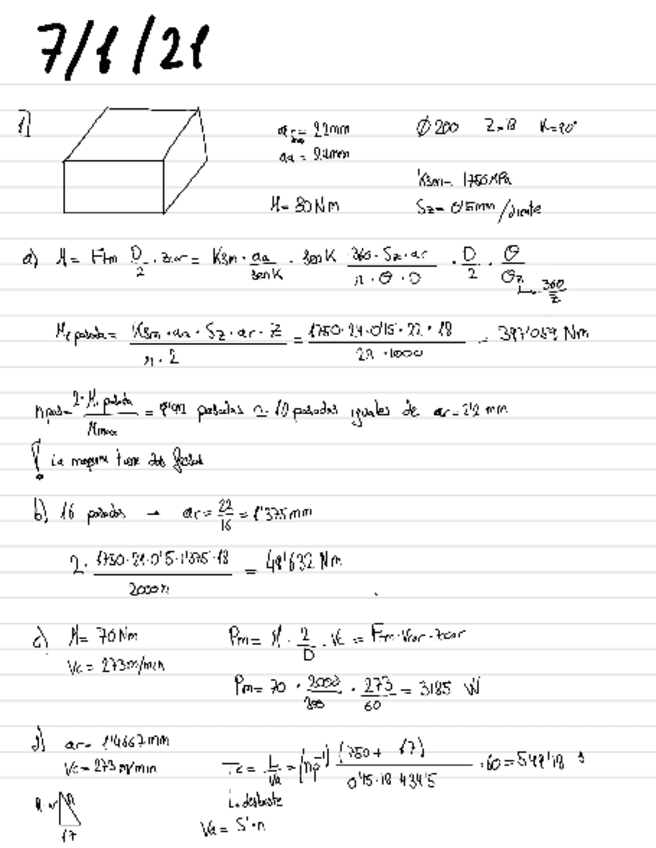 7/1/21
1)
ar = 22mm   Ø200   Z=18   K=90°
aa = 24mm
Ksm = 1750MPa
M = 80Nm   Sz = 0'15mm/diente
a) M = Ftm D/2 · zcor = Ksm · aa/senK · senK 360·Sz·ar/π·Θ·D · D/2 · Θ/Θz → 360/Z
M1 pasada = Ksm·aa·Sz·ar·Z/π·2 = 1750·24·0'15·22·18/2π·1000 = 397'059 Nm
npas = 2·M1 pasada/Mmax = pasadas ≈ 10 pasadas iguales de ar = 2'2 mm
! La maquina tiene dos
b) 16 pasadas → ar = 22/16 = 1'375mm
2 · 1750·24·0'15·1'375·18/2000π = 49'632 Nm
c) M = 70Nm   Pm = M · 2/D · Vc = Fm·Vcor·zcor
Vc = 273m/min
Pm = 70 · 2000/200 · 273/60 = 3185 W
d) ar = 1'4667mm
Vc = 273m/min   Tc = L/Va = (np-1) (750 + 17)/0'15·18·434'5 · 60 = 549'18 s
L. desbaste
17   Va = S·n